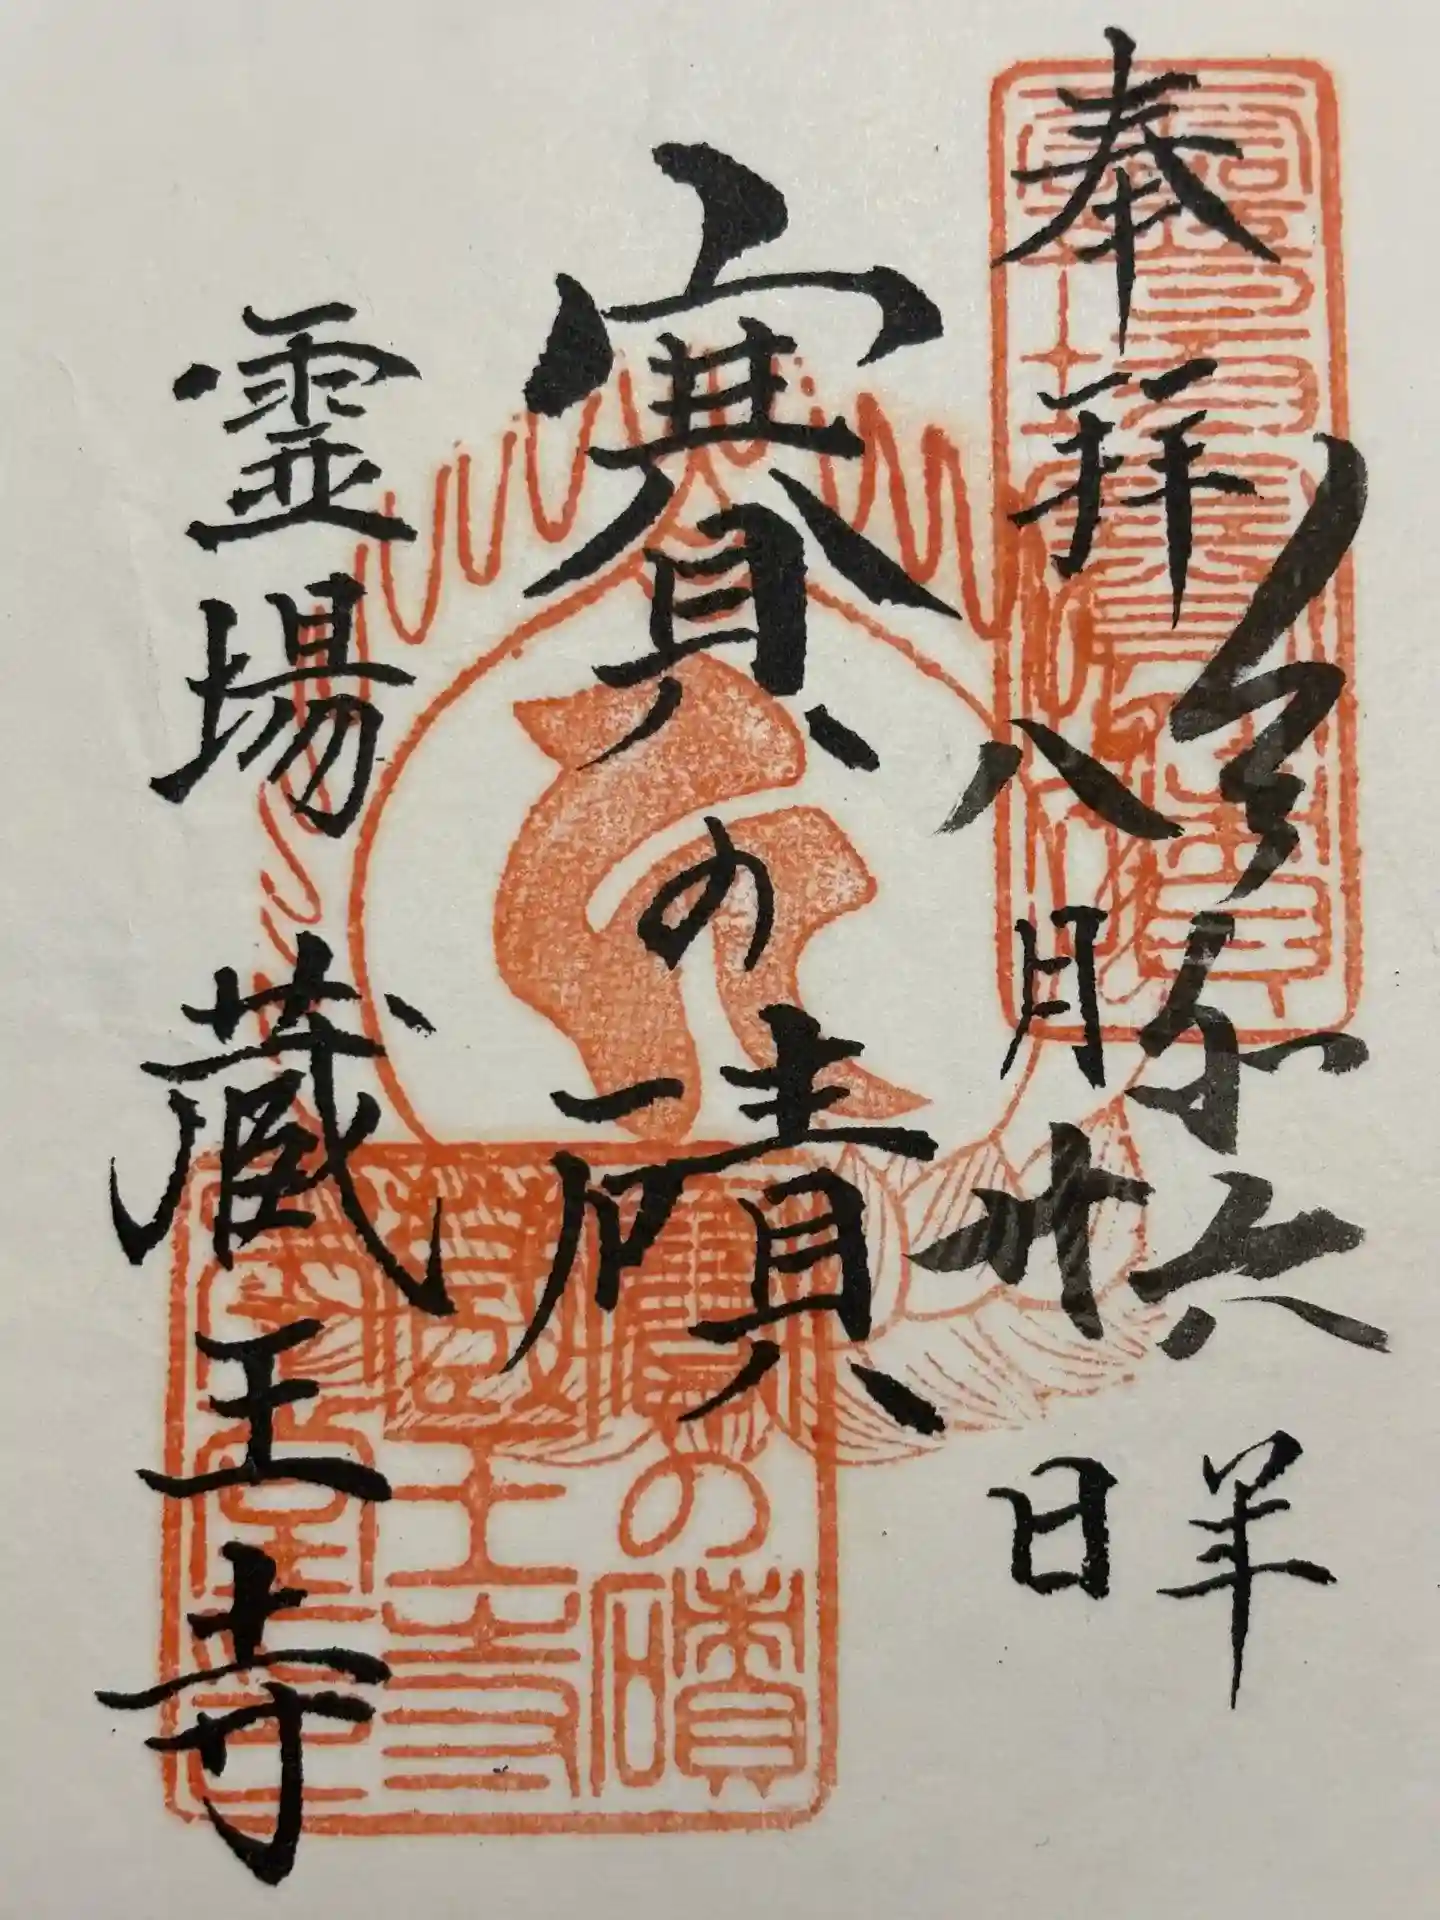 奉拝
令和六年
八月廿日
賽の磧
霊場 蔵王寺
賽の磧
蔵王寺